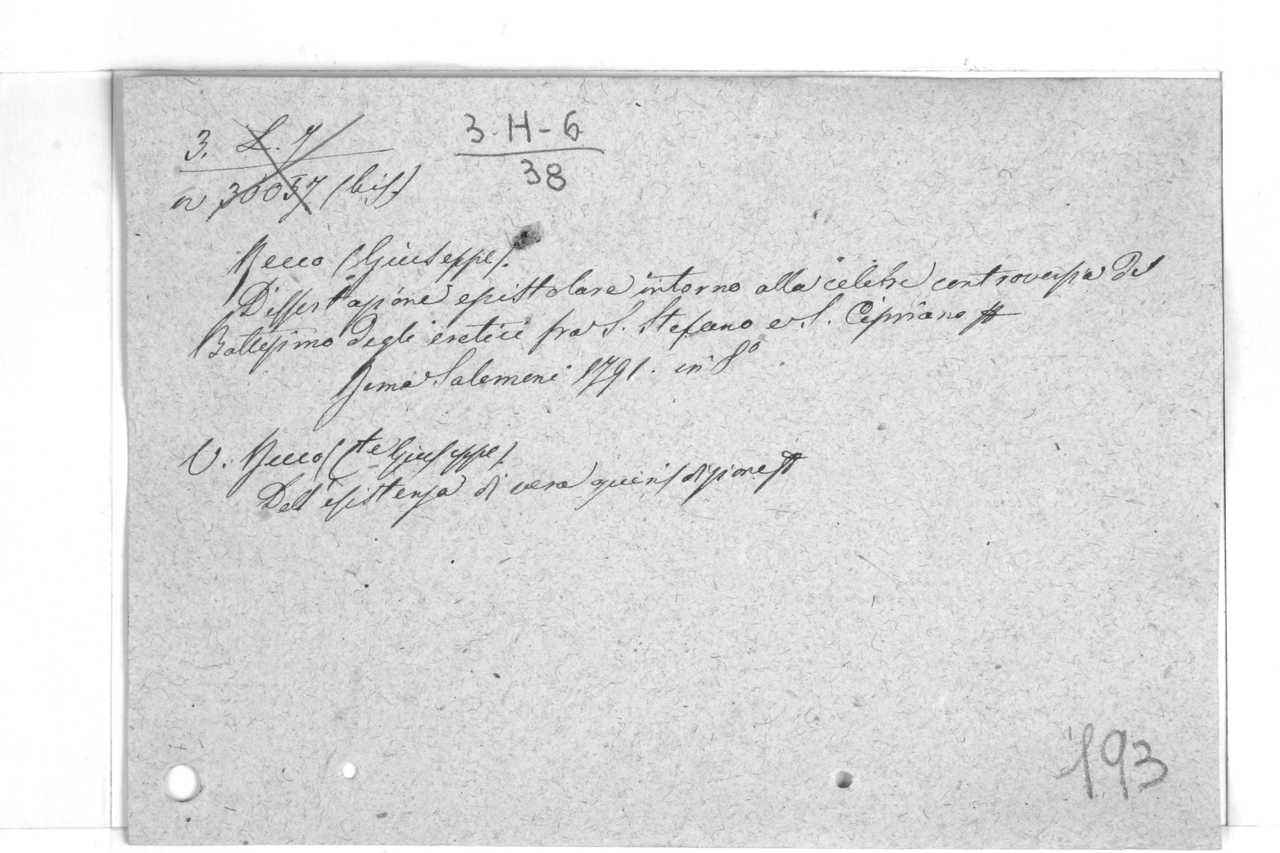 3. L. 7
3-H-6
38
n 30057 (bis)
Recco (Giuseppe).
Dissertazione epistolare intorno alla celebre controversia del
Battesimo degli eretici fra S. Stefano e S. Cipriano
Roma Salomoni 1791. in 8º
V. Recco (Cte Giuseppe).
Dell'esistenza di vera giurisdizione
193